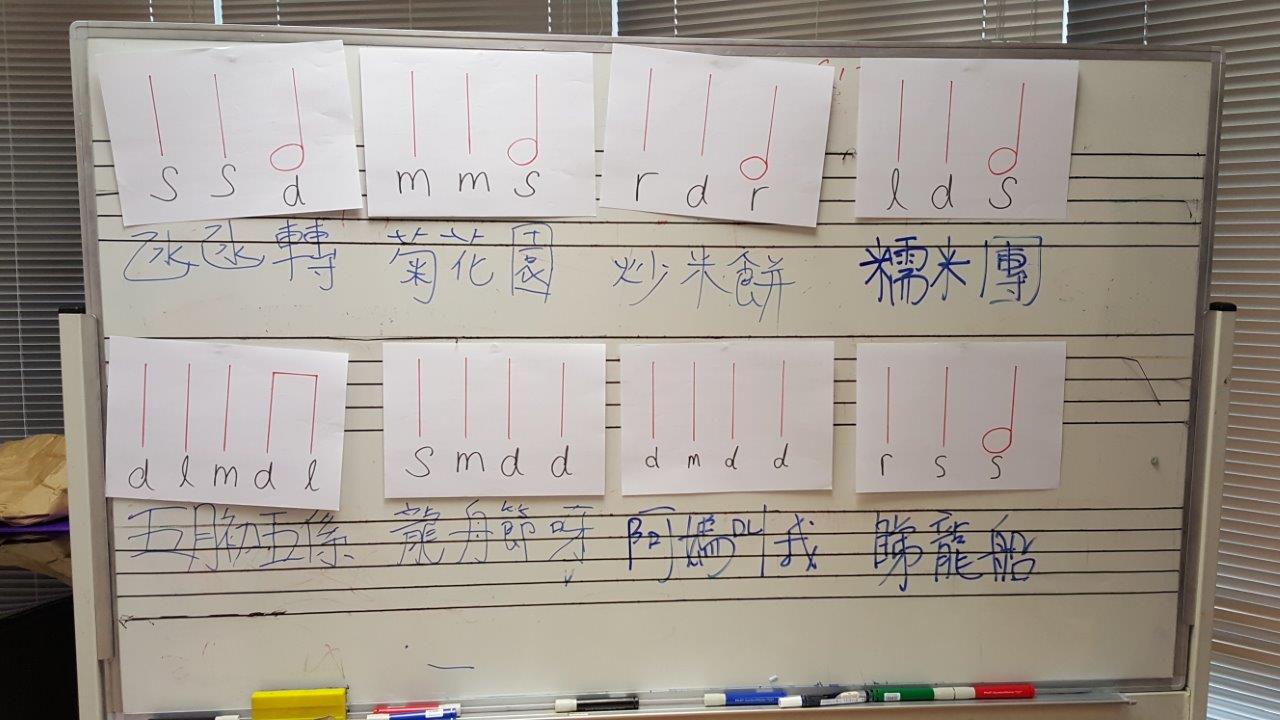 s s d m m s r d r l d s
氹氹轉 菊花園 炒米餅 糯米團
d l m d l s m d d d m d d r s s
五月初五係 龍舟節呀 阿媽叫我 睇龍船